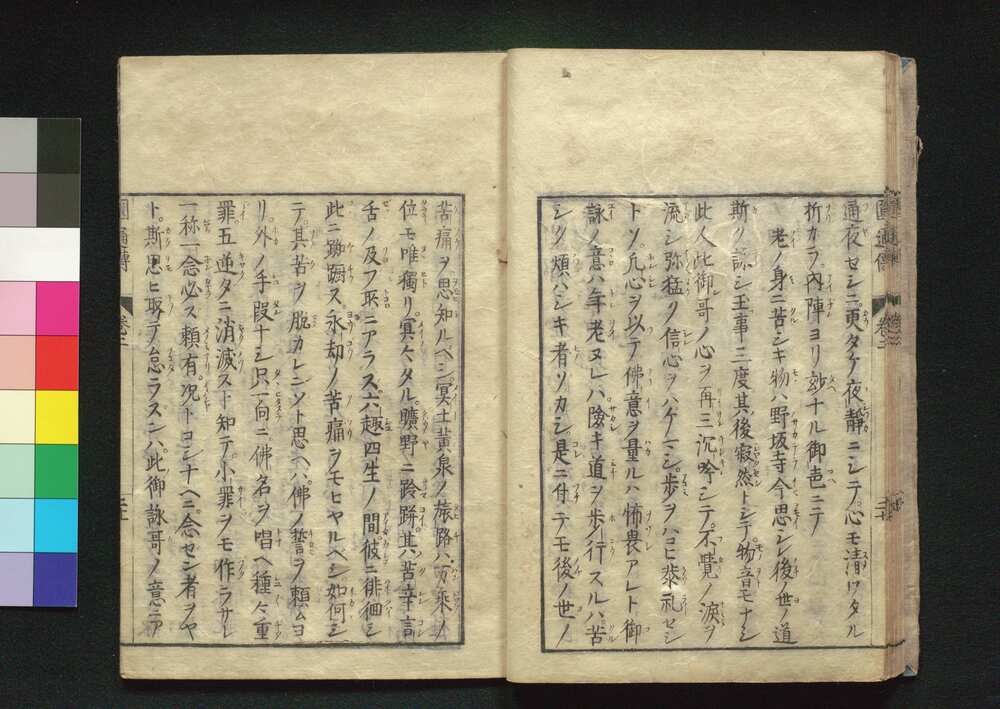 通夜セシニ更タケ夜靜ニシテ心モ清ワタル
折カラ内陣ヨリ妙ナル御声ニテ
老ノ身ニ苦シキ物ハ野坂寺今思シレ後ノ世ノ道
斯ク詠シ玉事三度其後寂然トシテ物音モナシ
此人此御哥ノ心ヲ再三沉吟シテ不覺ノ淚ヲ
流シ弥猛ク信心ヲハケマシ歩ヲハコヒ泰礼セシ
トソ凡心ヲ以テ佛意ヲ量ルハ怖畏アレト御
詠ノ意ハ年老ヌレハ險キ道ヲ歩ノ行スルハ苦
シク煩ハシキ者ソカシ是ニ付テモ後ノ世ノ
苦痛ヲ思知ルヘシ冥土黄泉ノ旅路ハ万乘ノ
位モ唯獨リ冥々タル曠野ニ跉跰其苦辛言
舌ノ及フ所ニアラス六趣四生ノ間彼ニ徘徊シ
此ニ跼蹐ス永却ノ苦痛ヲモヒヤルヘシ如何シ
テ其苦ヲ脱カレンソト思ヘハ佛ノ誓ヲ頼ムヨ
リ外ノ手段ナシ只一向ニ佛名ヲ唱ヘ種々重
罪五逆タニ消滅スト知テ小罪ヲモ作ラサレ
一称一念必ス頼有況トコシナヘニ念セン者ヲヤ
ト斯思ヒ取テ怠ラスンハ此御詠哥ノ意ニア